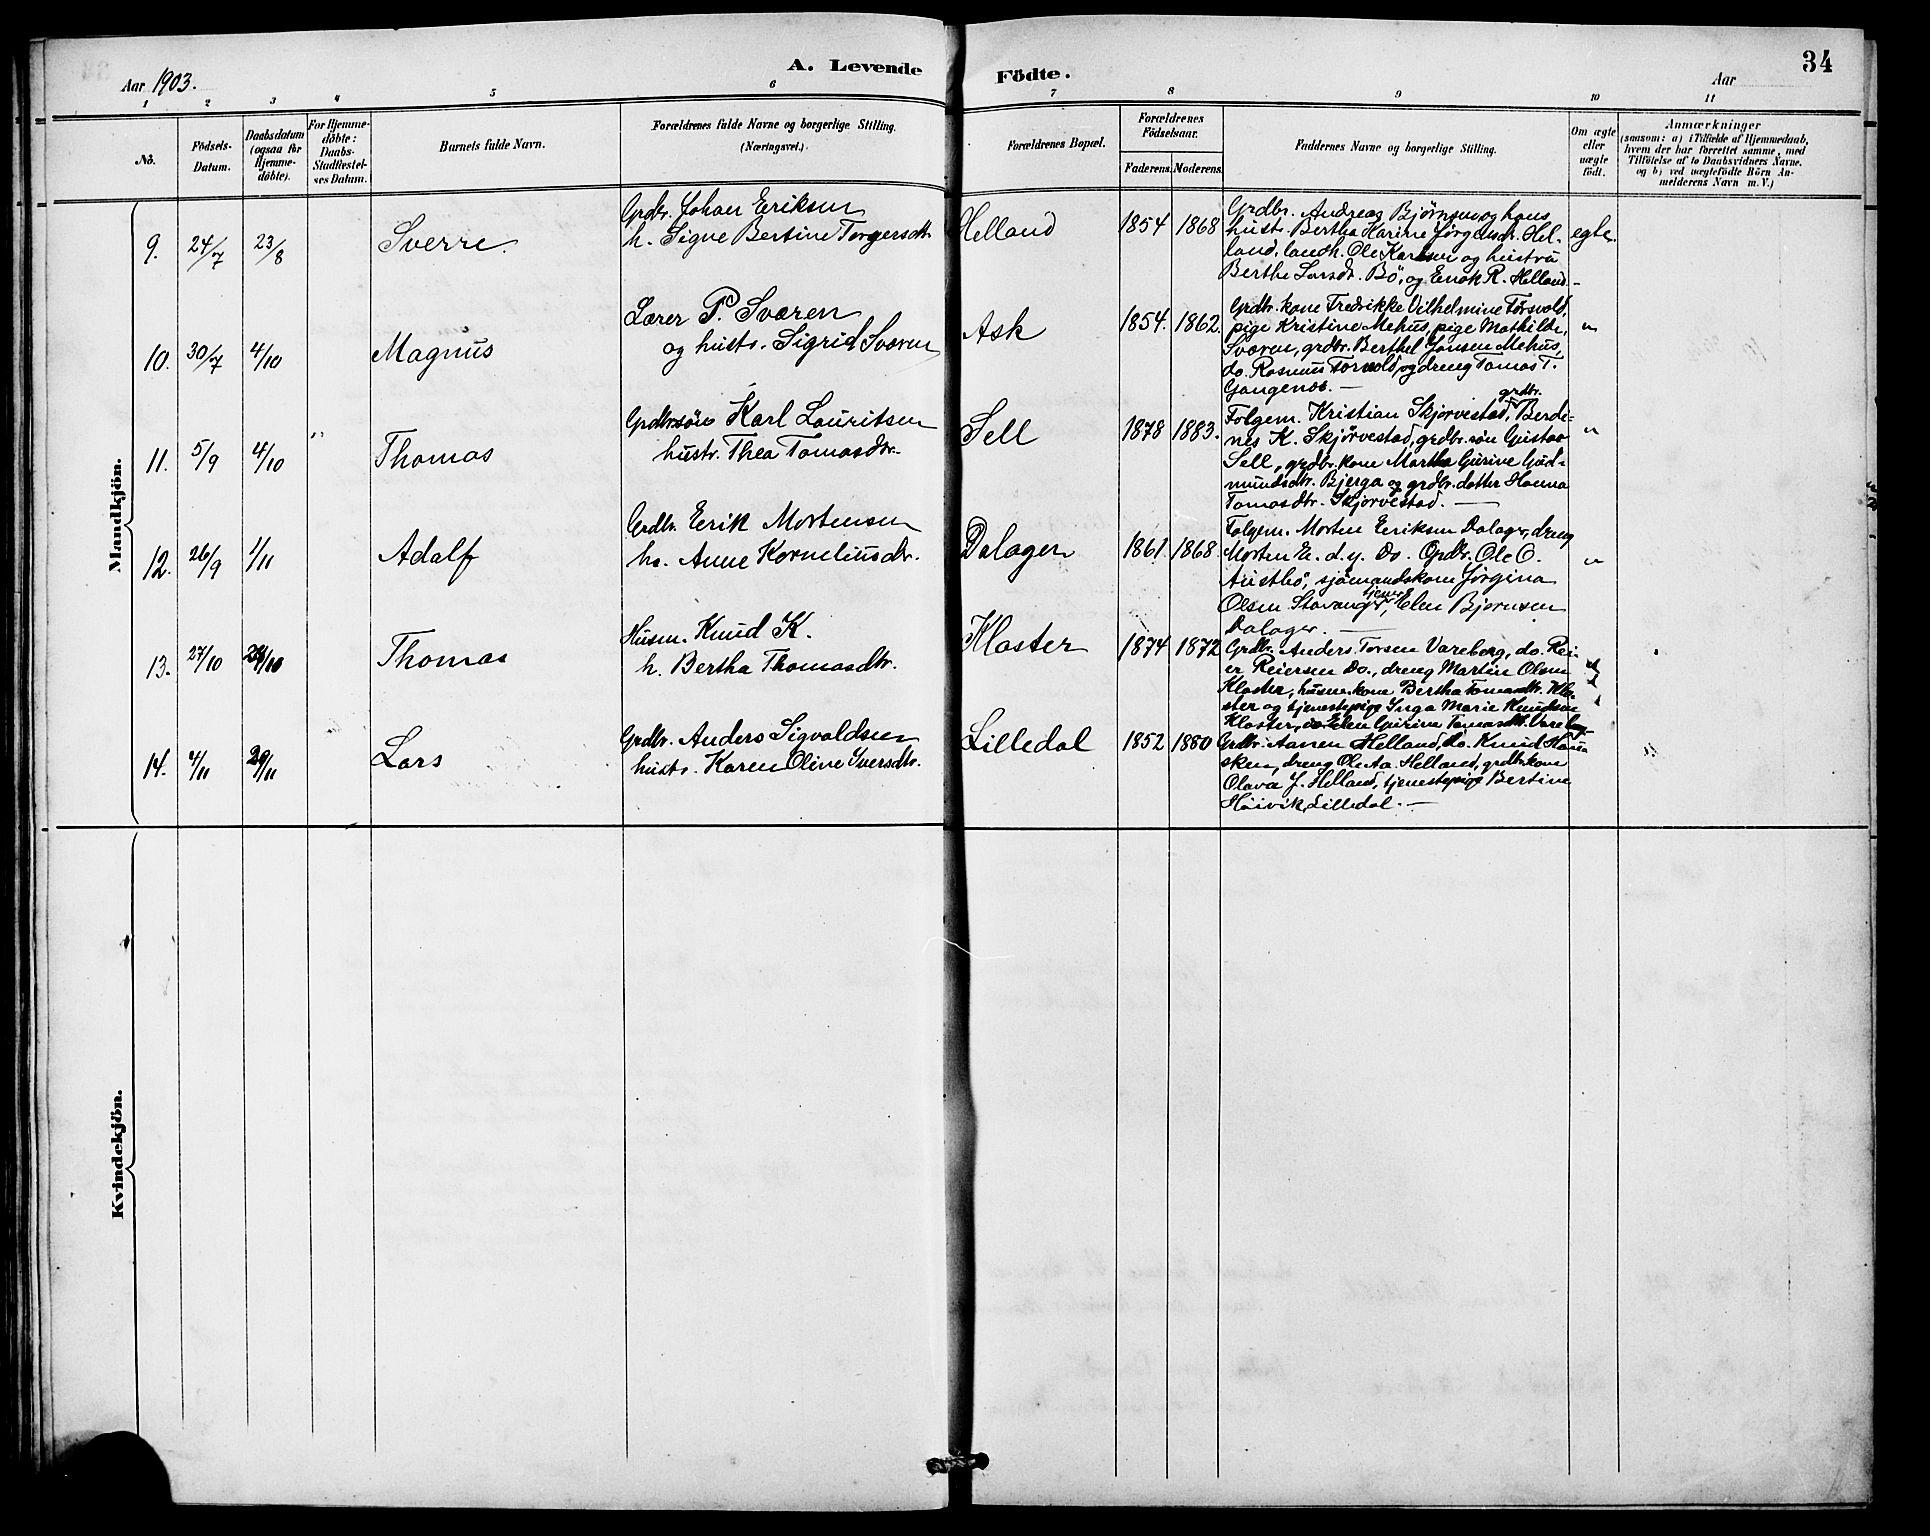 34
A. Levende Födte.
Aar 1903.
Aar
1 2 3 4 5 6 7 8 9 10 11
No.
Födsels-
Datum.
Daabsdatum
(ogsaa for
Hjemme-
döbte).
For Hjemme-
döbte:
Daabs-
Stadfæstel-
ses Datum.
Barnets fulde Navn.
Forældrenes fulde Navne og borgerlige Stilling.
(Næringsvei.)
Forældrenes Bopæl.
Forældrenes
Födselsaar.
Faderens. Moderens.
Faddernes Navne og borgerlige Stilling.
Om ægte
eller
uægte
födt.
Anmærkninger
(saasom: a) i Tilfælde af Hjemmedaab,
hvem der har forrettet samme, med
Tilföielse af to Daabsvidners Navne,
og b) ved uægtefödte Börn An-
melderens Navn m. V.)
Mandkjön.
9. 24/7 23/8 Sverre.
Grdbr. Johan Eriksen
h. Signe Bertine Torgersdtr.
Helland 1854 1868
Grdbr. Andreas Bjørnsen og hans
hustr. Bertha Karine Jørgensdtr. Hel-
land, landh. Ole Karlsen og hustru
Berthe Larsdtr. Bö, og Enok R. Helland.
egte.
10. 30/7 4/10 Magnus
Lærer P. Sværen
og hustr. Sigrid Sværen
Ask 1854. 1862.
Grdbr. kone Fredrikke Vilhelmine Torsvold,
pige Kristine Mehus, pige Mathilde
Sværen, grdbr. Berthel Jansen Mehus,
do. Rasmus Torvold, og dreng Tomas T.
Gangenæs. —
"
11. 5/9 4/10 " Thomas
Grdbrsön Karl Lauritsen
hustr. Thea Tomasdtr.
Sell 1878 1883.
Folgem. Kristian Skjørvestad, grdbr. Berde-
nes K. Skjørvestad, grdbr. sön Gustav
Sell, grdbr. kone Martha Gurine Gud-
mundsdtr. Bjerga og grdbr. datter Hanna
Tomasdtr. Skjørvestad. —
"
12. 26/9 1/11 Adalf
Grdbr. Erik Mortensen
h. Anne Korneliusdtr.
Dalager 1861. 1868.
Folgem. Morten Eriksen Dalager, dreng
Morten E. d. y. Do. Grdbr. Ole O.
Austbö, sjömandskone Jørgina
Olsen Stavanger, tjener Elen Bjørnsen
Dalager. —
"
13. 27/10 Thomas
Husm. Knud K.
h. Bertha Thomasdtr.
Kloster 1874 1872
Grdbr. Anders Torsen Vareberg, do. Rei-
er Reiersen Do., dreng Martin Olsen
Kloster, husm. kone Bertha Tomasdtr. Klo-
ster og tjenestepige Inga Marie Knudsen
Kloster, do. Elen Gurine Tomasdtr. Vareberg.
14. 4/11 29/11 Lars
Grdbr. Anders Sigvaldsen
hustr. Karen Oline Iversdtr.
Lilledal 1852 1880
Grdbr. Aanen Helland, do. Knud Hau-
sken, dreng Ole Aa. Helland, grdbr. kone
Olava J. Helland, tjenestepige Bertine
Höivik, Lilledal. —
"
Kvindekjön.